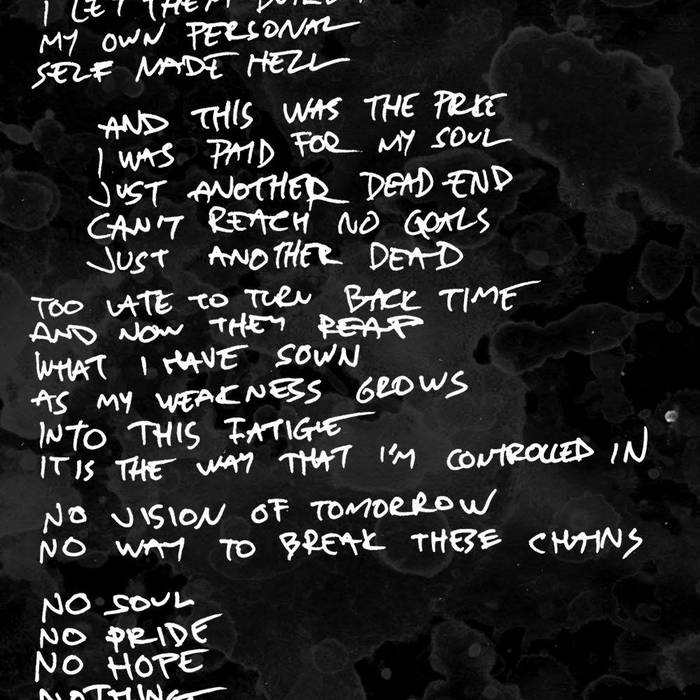 I LET THEM BUILD
MY OWN PERSONAL
SELF MADE HELL
AND THIS WAS THE PRICE
I WAS PAID FOR MY SOUL
JUST ANOTHER DEAD-END
CAN'T REACH NO GOALS
JUST ANOTHER DEAD
TOO LATE TO TURN BACK TIME
AND NOW THEY REAP
WHAT I HAVE SOWN
AS MY WEAKNESS GROWS
INTO THIS FATIGUE
IT IS THE WAY THAT I'M CONTROLLED IN
NO VISION OF TOMORROW
NO WAY TO BREAK THESE CHAINS
NO SOUL
NO PRIDE
NO HOPE
NOTHING